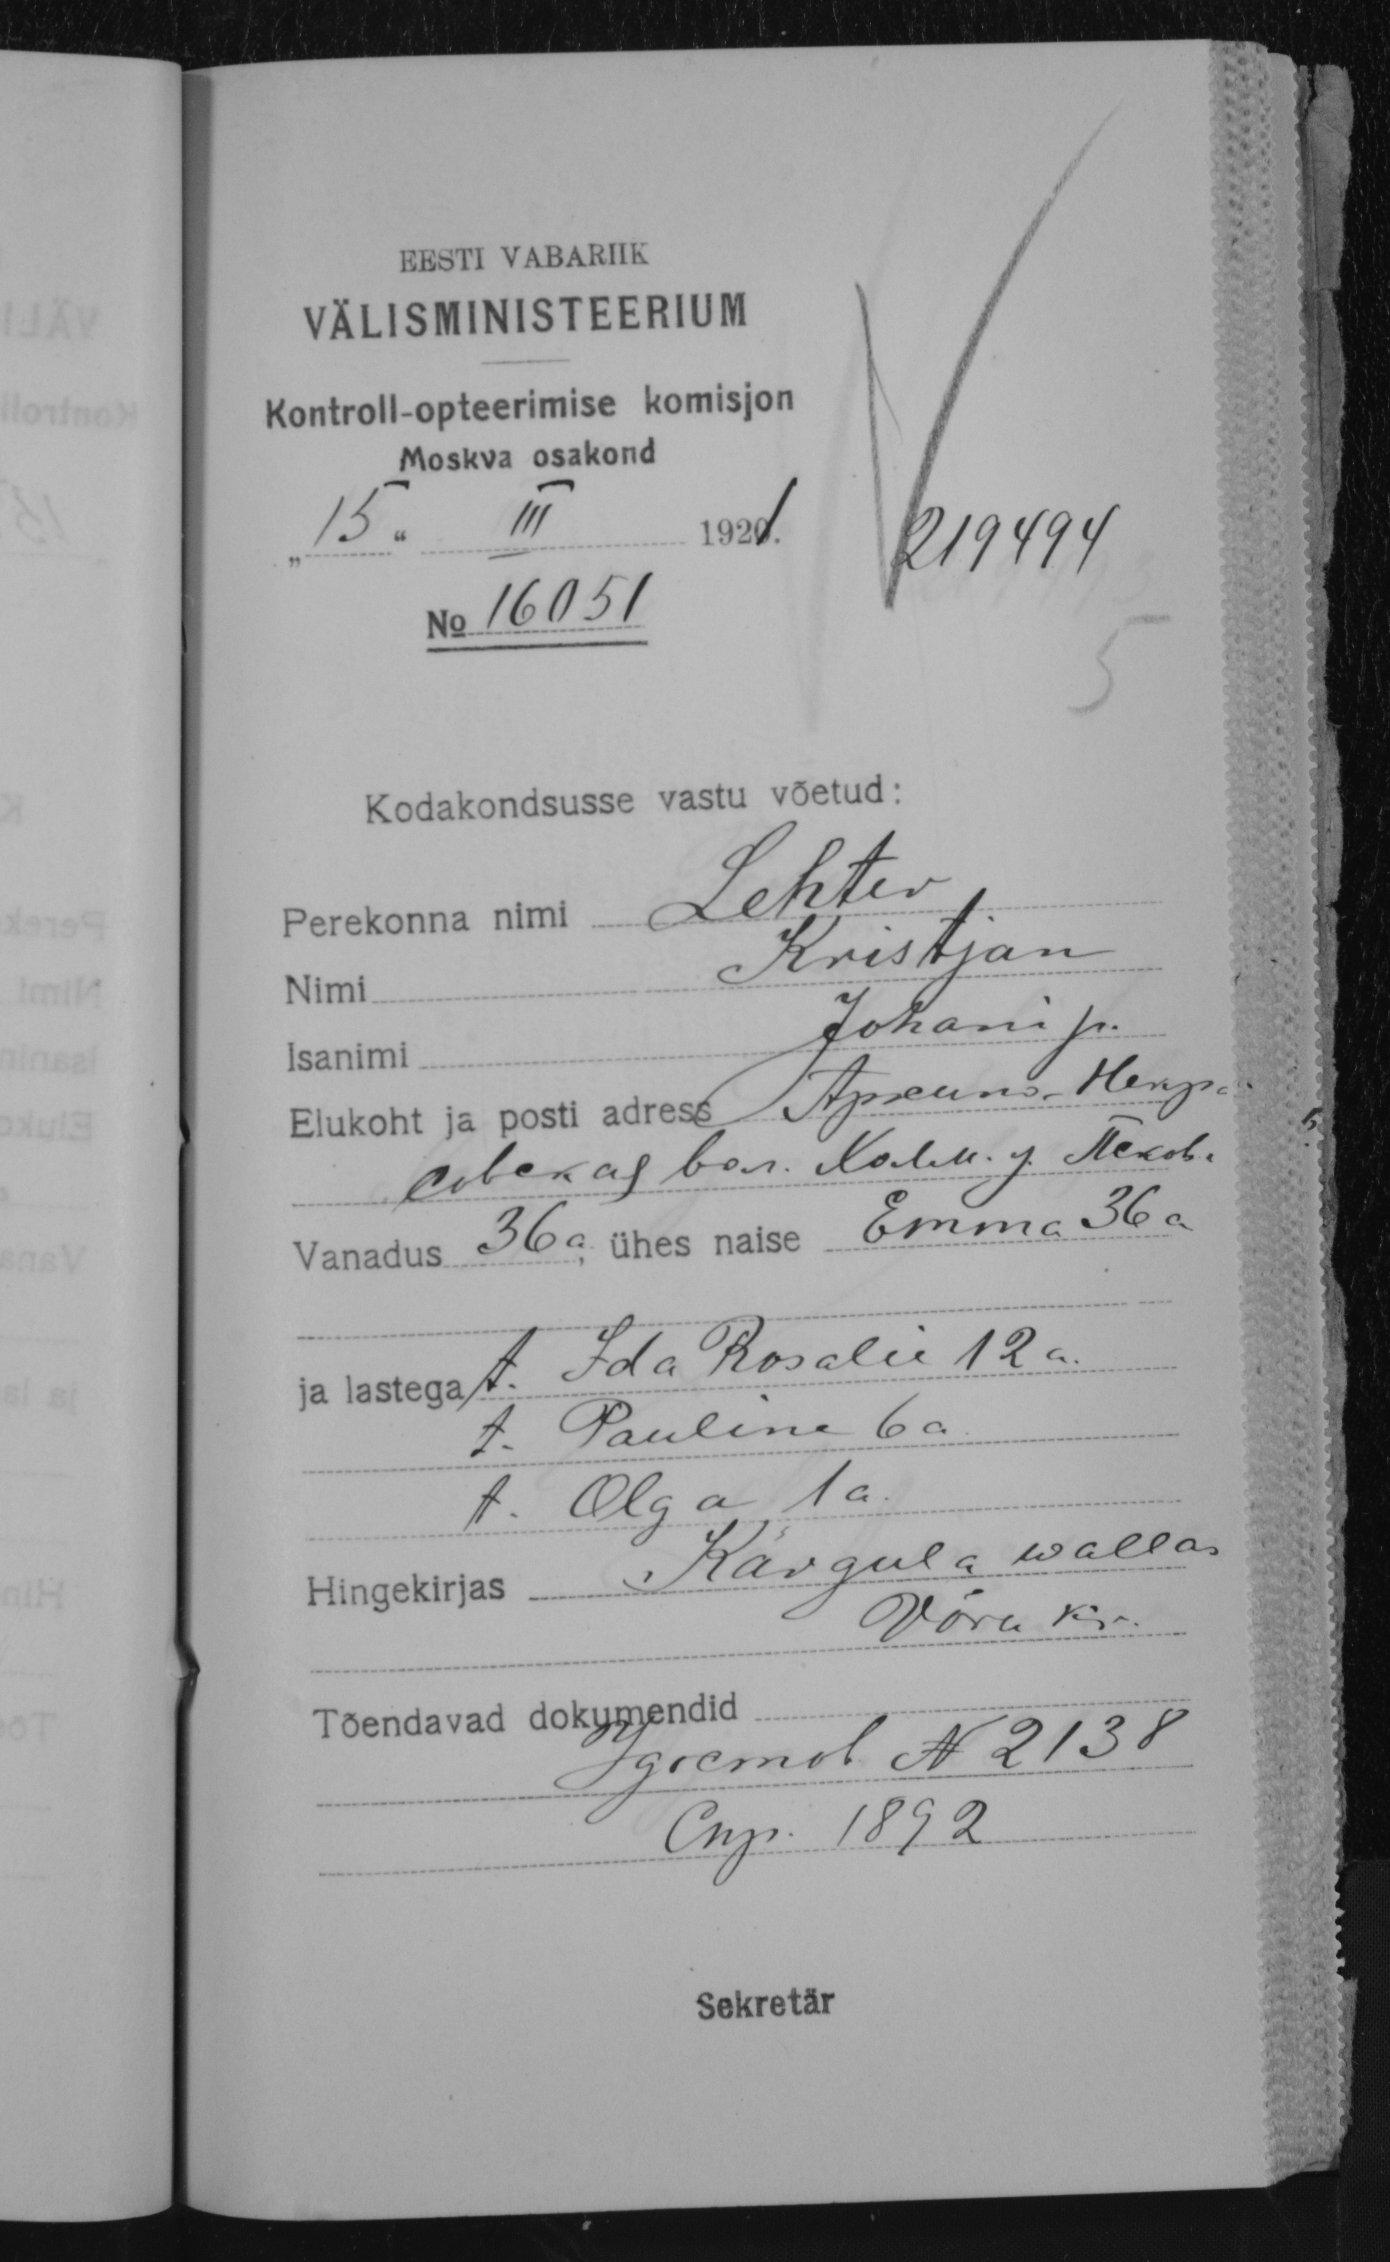 EESTI VABARIIK
VÄLISMINISTEERIUM
Kontroll-opteerimise komisjon
Moskva osakond
„15“ III 1921.
219494
№ 16051
5
Kodakondsusse vastu võetud:
Perekonna nimi Lehter
Nimi Kristjan
Isanimi Johani p.
Elukoht ja posti adress Некра
совская вол. Холм. у. Псков.
Vanadus 36 a, ühes naise Emma 36 a
ja lastega t. Ida Rosalie 12 a.
t. Pauline 6 a
t. Olga 1 a.
Hingekirjas Kärgula wallas
Võru kr.
Tõendavad dokumendid
Удостов. № 2138
Спр. 1892
Sekretär